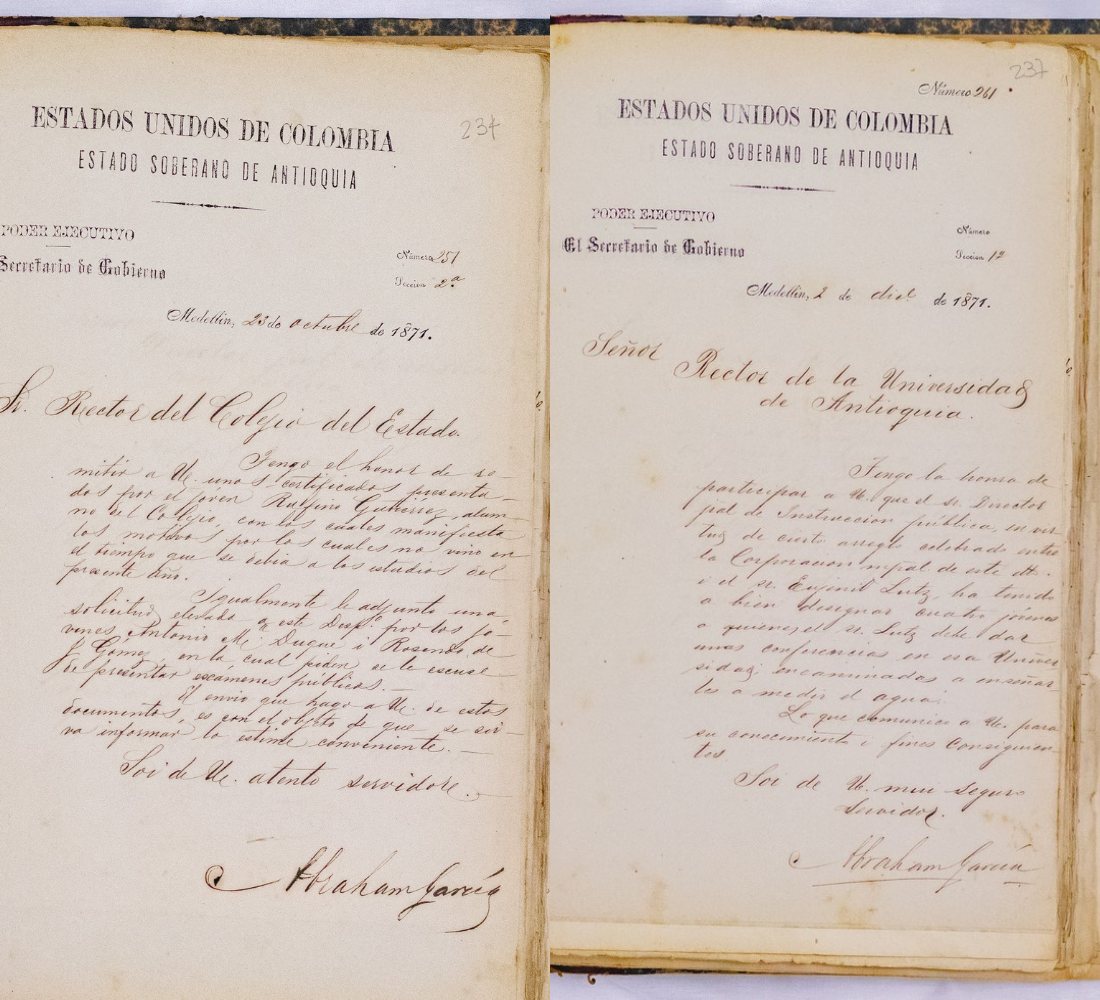 234
ESTADOS UNIDOS DE COLOMBIA
ESTADO SOBERANO DE ANTIOQUIA
PODER EJECUTIVO
Secretario de Gobierno
Número 251
Seccion 2ª
Medellin, 23 de octubre de 1871.
Sr. Rector del Colejio del Estado.
Tengo el honor de re-
mitir a U. unos certificados presenta-
dos por el jóven Rufino Gutiérrez, alum-
no del Colejio, con los cuales manifiesta
los motivos por los cuales no vino en
el tiempo que se debia a los estudios del
presente año.
Igualmente le adjunto una
solicitud elevada a este Desp.º por los jó-
venes Antonio Mª Duque i Rosendo de
J. Gómez, en la cual piden se le escuse
de presentar escámenes públicos.—
El envio que hago a U. de estos
documentos, es con el objeto de que se sir-
va informar lo estime conveniente.—
Soi de U. atento servidor.
Abraham García
237
Número 261
ESTADOS UNIDOS DE COLOMBIA
ESTADO SOBERANO DE ANTIOQUIA
PODER EJECUTIVO
El Secretario de Gobierno
Número
Seccion 1ª
Medellin, 2 de dice de 1871.
Señor
Rector de la Universidad
de Antioquia.
Tengo la honra de
participar a U. que el sr. Director
jral de Instruccion pública, en vir-
tud de cierto arreglo celebrado entre
la Corporacion mpal de este dto.
i el sr. Eujenio Lutz, ha tenido
a bien designar cuatro jóvenes
a quienes el sr. Lutz debe dar
unas conferencias en esa Univer-
sidad, encaminadas a enseñar-
les a medir el agua.
Lo que comunico a U. para
su conocimiento i fines consiguien-
tes
Soi de U. mui seguro
servidor.
Abraham García